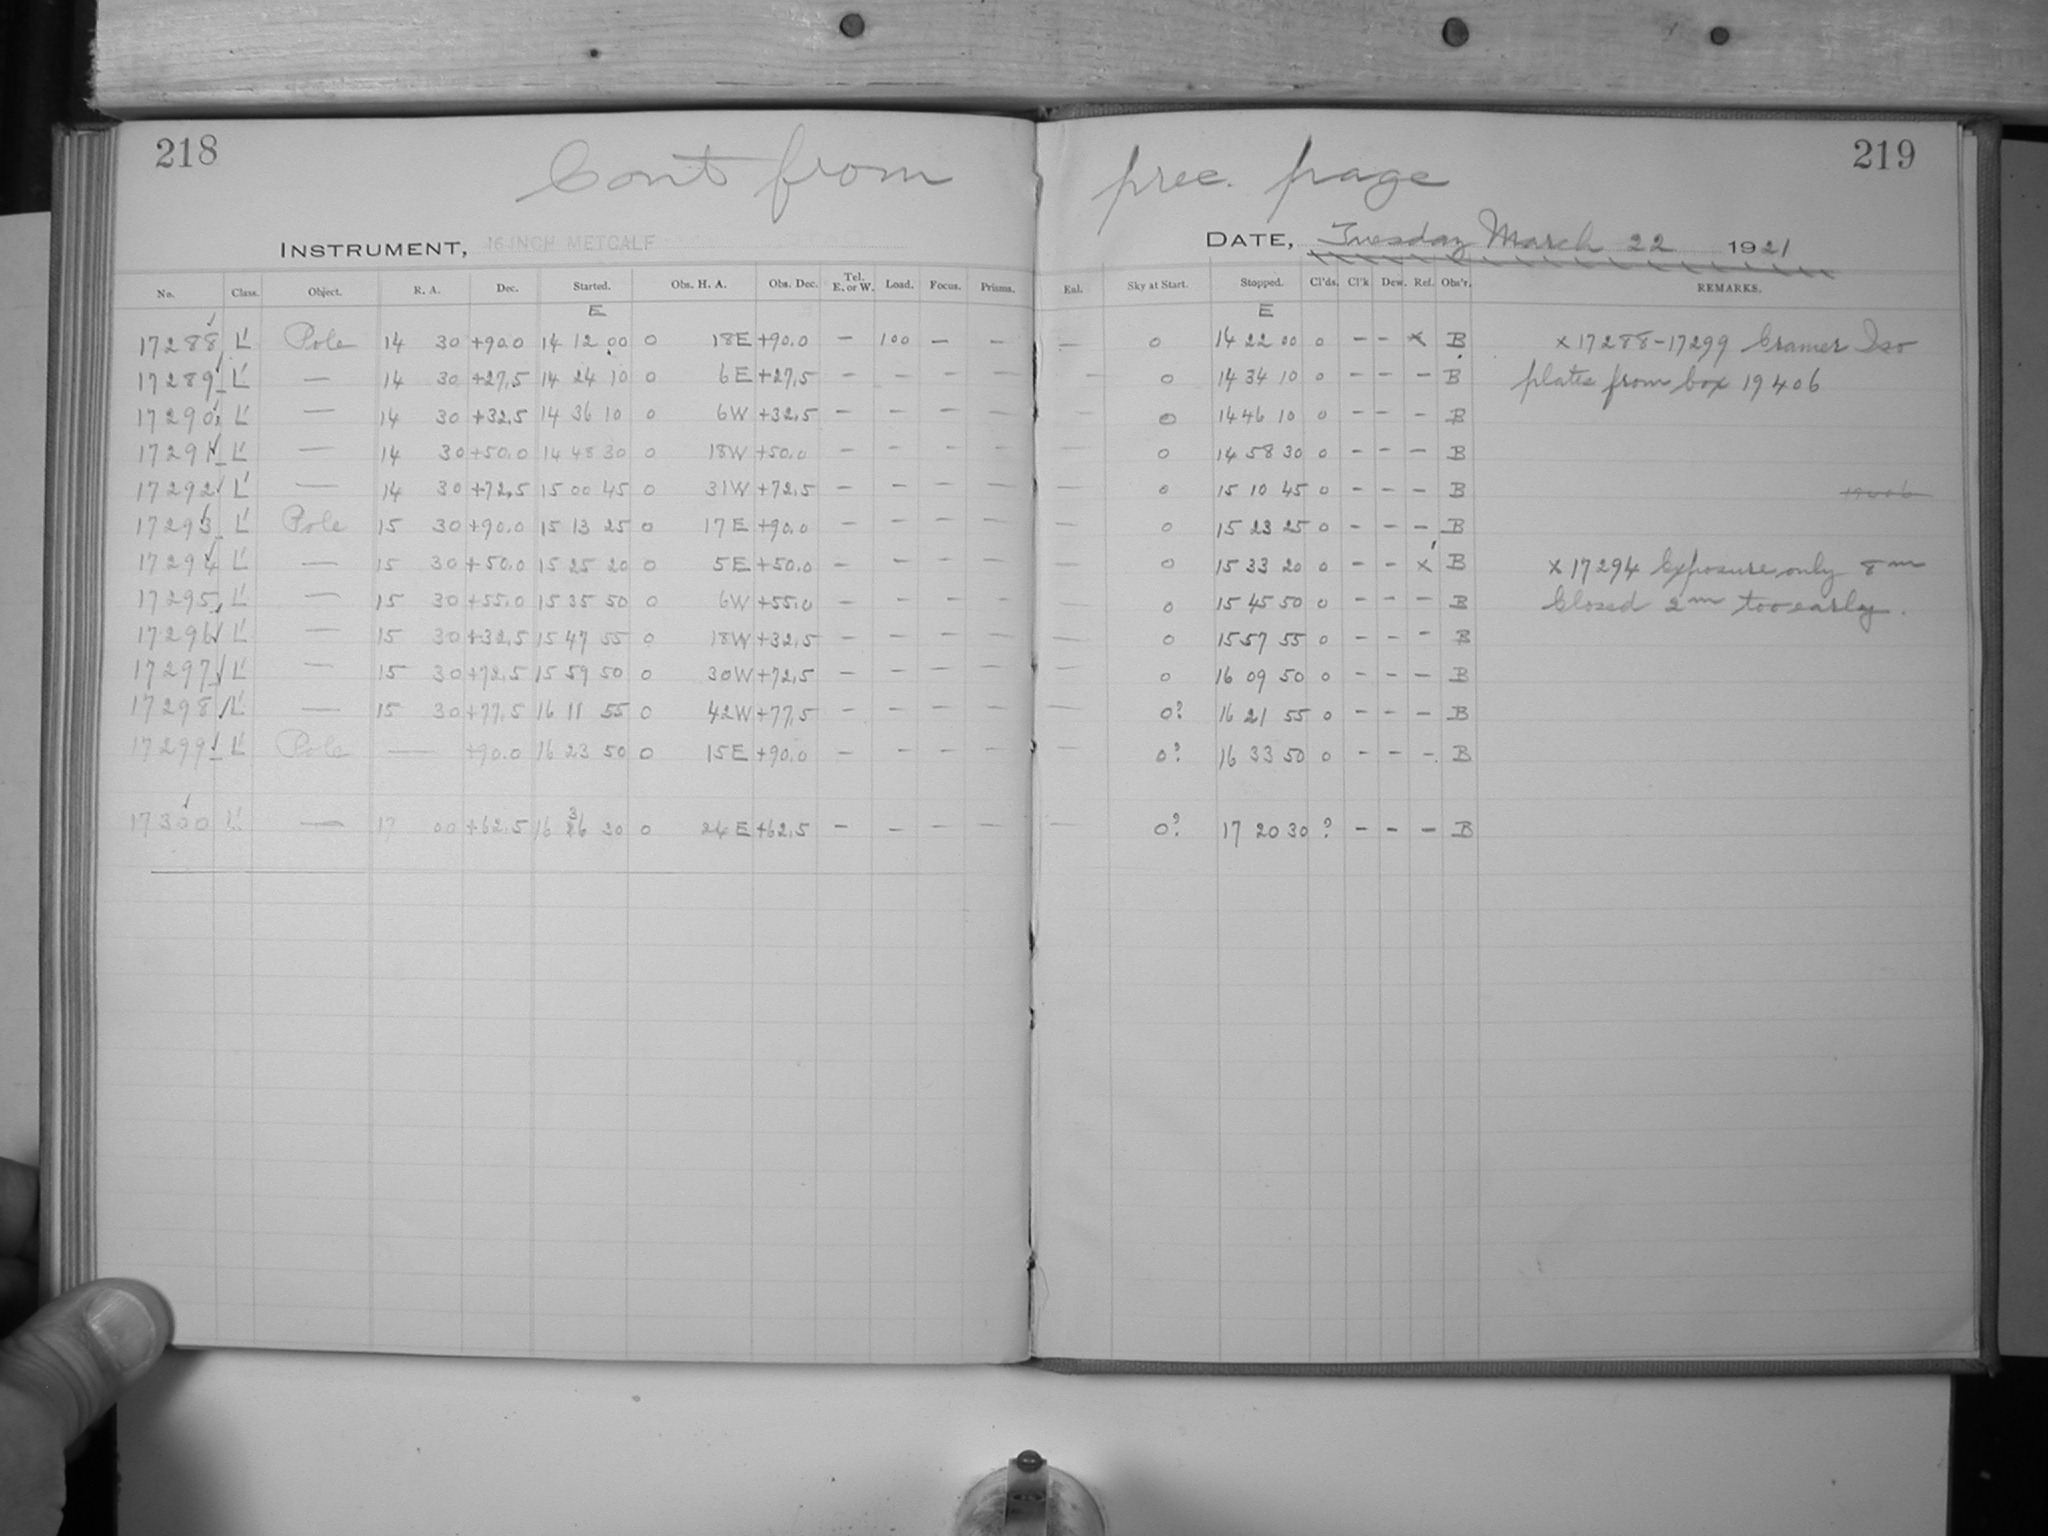 218
219
Cont from prec. page
INSTRUMENT, 16 INCH METCALF DATE, Tuesday March 22 1921
No. Class. Object. R. A. Dec. Started. Obs. H. A. Obs. Dec. Tel. E. or W. Load. Focus. Prisms. Eal. Sky at Start. Stopped. Cl'ds. Cl'k Dew. Ref. Obs'r. REMARKS.
E E
17288 L' Pole 14 30 +90.0 14 12 00 0 18E +90.0 — 100 — — — 0 14 22 00 0 — — x B x 17288-17299 Cramer Iso
17289 L' — 14 30 +27.5 14 24 10 0 6E +27.5 — — — — — 0 14 34 10 0 — — — B plates from box 19406
17290 L' — 14 30 +32.5 14 36 10 0 6W +32.5 — — — — — 0 14 46 10 0 — — — B
17291 L' — 14 30 +50.0 14 48 30 0 18W +50.0 — — — — — 0 14 58 30 0 — — — B
17292 L' — 14 30 +72.5 15 00 45 0 31W +72.5 — — — — — 0 15 10 45 0 — — — B
17293 L' Pole 15 30 +90.0 15 13 25 0 17E +90.0 — — — — — 0 15 23 25 0 — — — B
17294 L' — 15 30 +50.0 15 25 20 0 5E +50.0 — — — — — 0 15 33 20 0 — — x B x 17294 Exposure only 8m
17295 L' — 15 30 +55.0 15 35 50 0 6W +55.0 — — — — — 0 15 45 50 0 — — — B Closed 2m too early.
17296 L' — 15 30 +32.5 15 47 55 0 18W +32.5 — — — — — 0 15 57 55 0 — — — B
17297 L' — 15 30 +72.5 15 59 50 0 30W +72.5 — — — — — 0 16 09 50 0 — — — B
17298 L' — 15 30 +77.5 16 11 55 0 42W +77.5 — — — — — 0? 16 21 55 0 — — — B
17299 L' Pole — +90.0 16 23 50 0 15E +90.0 — — — — — 0? 16 33 50 0 — — — B
17300 L' — 17 00 +62.5 16 36 30 0 24E +62.5 — — — — — 0? 17 20 30 ? — — — B